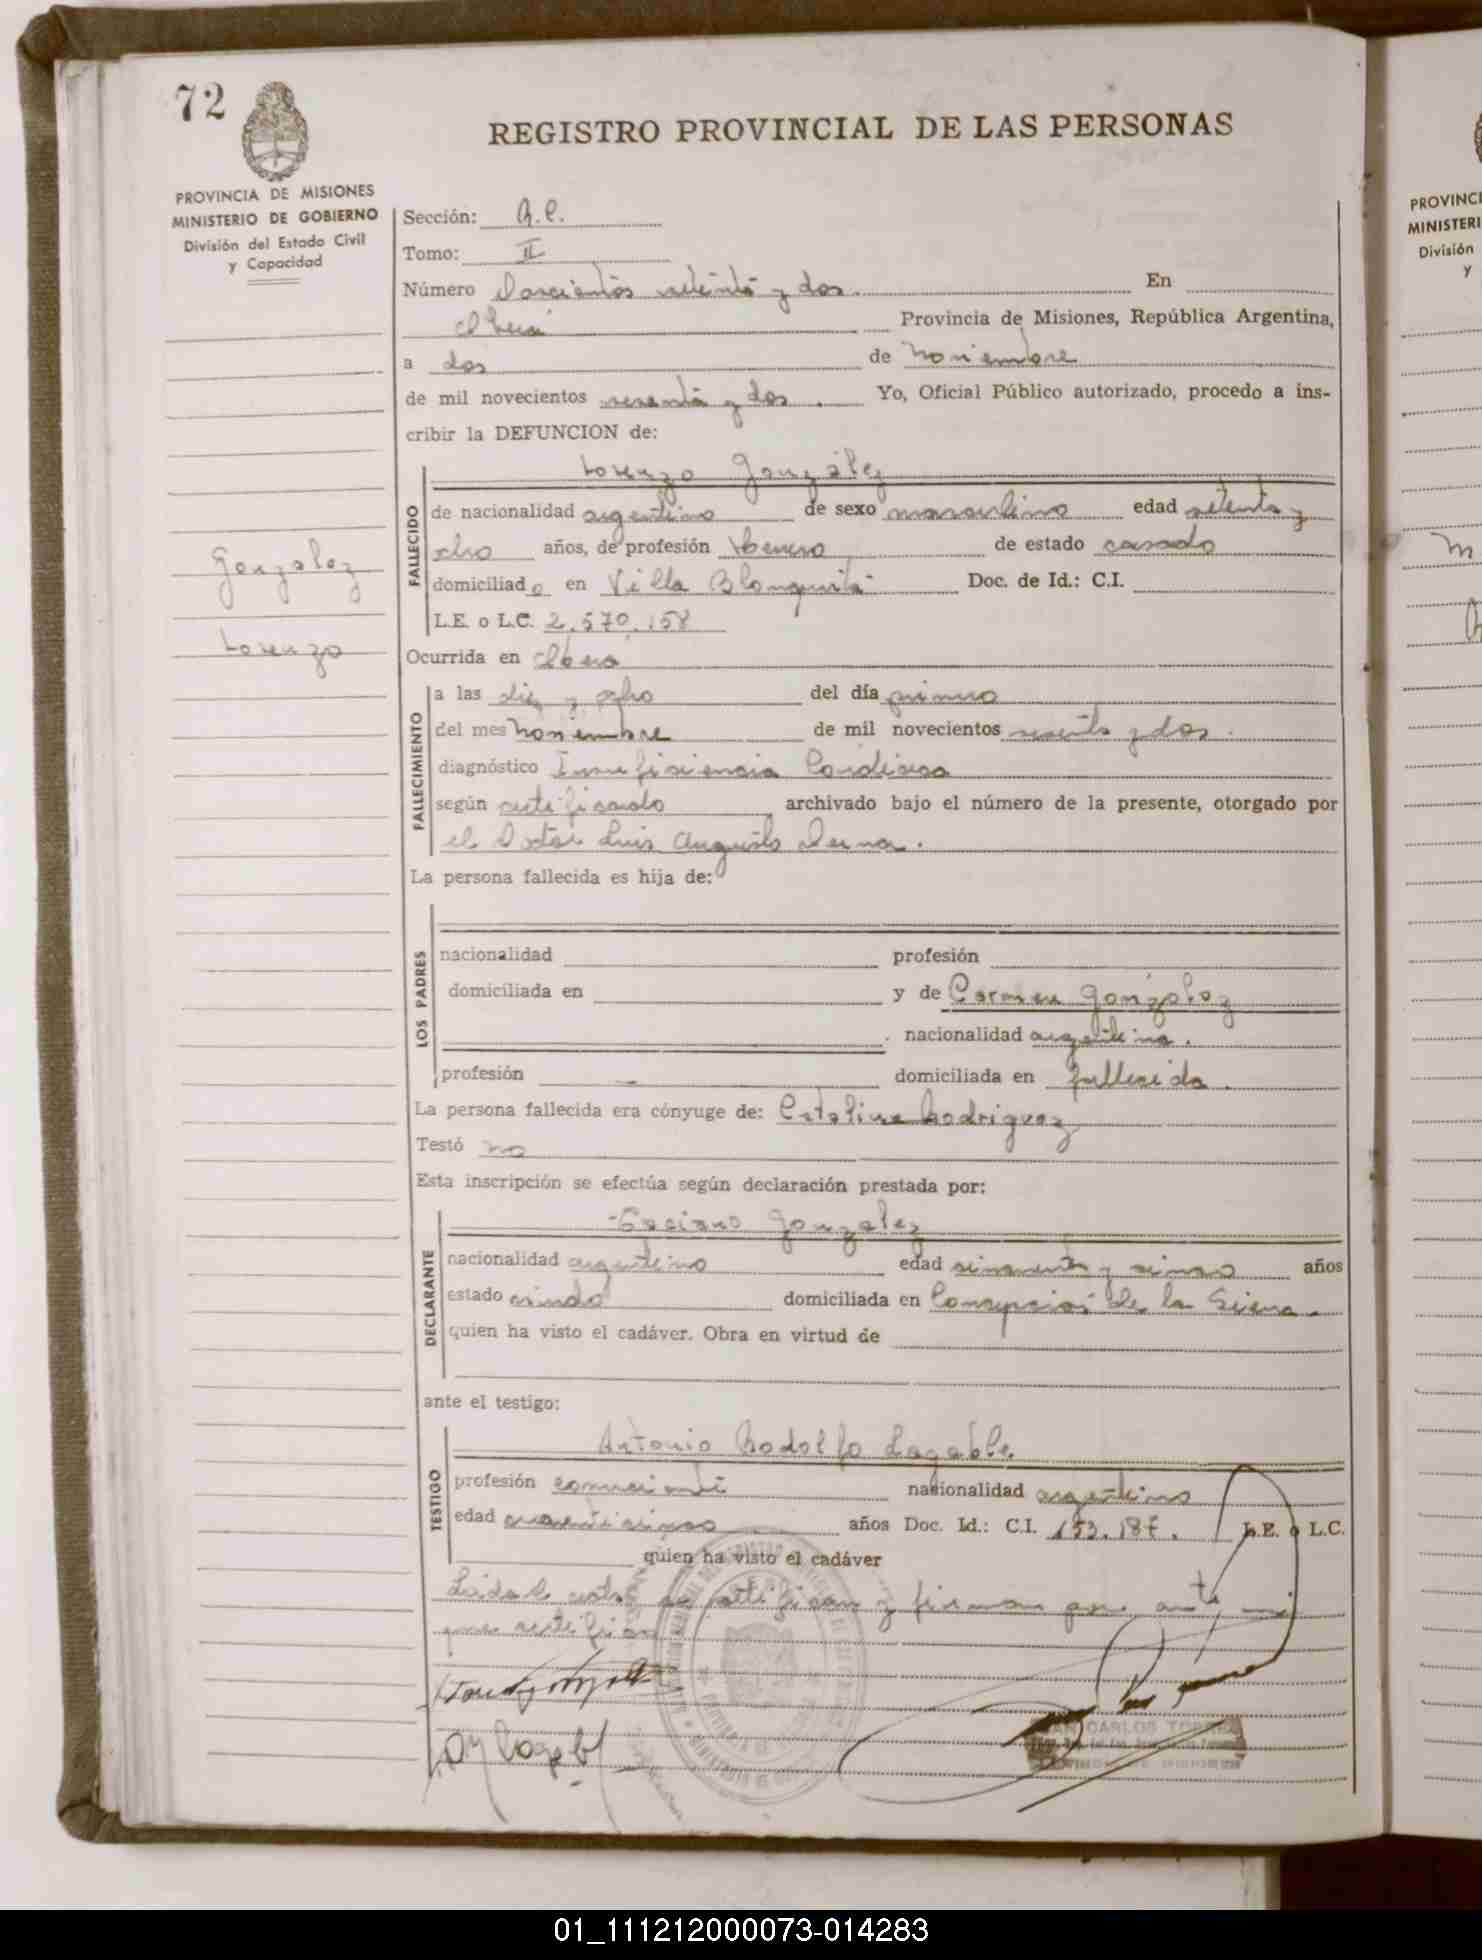 72
REGISTRO PROVINCIAL DE LAS PERSONAS
PROVINCIA DE MISIONES
MINISTERIO DE GOBIERNO
División del Estado Civil
y Capacidad
Sección:
Tomo: II
Número Doscientos setenta y dos. En
Provincia de Misiones, República Argentina,
a dos de noviembre
de mil novecientos sesenta y dos. Yo, Oficial Público autorizado, procedo a ins-
cribir la DEFUNCION de:
Gonzalez
Lorenzo
FALLECIDO
Lorenzo Gonzalez
de nacionalidad argentino de sexo masculino edad setenta y
ocho años, de profesión de estado casado
domiciliado en Villa Blanquita Doc. de Id.: C.I.
L.E. o L.C. 2.570.158
Ocurrida en Oberá
FALLECIMIENTO
a las diez y ocho del día primero
del mes noviembre de mil novecientos sesenta y dos.
diagnóstico Insuficiencia Cardiaca
según certificado archivado bajo el número de la presente, otorgado por
el Doctor Luis Augusto
La persona fallecida es hija de:
LOS PADRES
nacionalidad profesión
domiciliada en y de Carmen Gonzalez
nacionalidad argentina.
profesión — domiciliada en fallecida.
La persona fallecida era cónyuge de: Catalina Rodriguez
Testó no
Esta inscripción se efectúa según declaración prestada por:
DECLARANTE
Gonzalez
nacionalidad argentino edad años
estado domiciliada en Concepción de la Sierra.
quien ha visto el cadáver. Obra en virtud de
ante el testigo:
TESTIGO
Antonio Rodolfo
profesión comerciante nacionalidad argentino
edad años Doc. Id.: C.I. 153.187. L.E. o L.C.
quien ha visto el cadáver
Leida el acta, se ratifican y firman por ante mi
que certifico
JUAN CARLOS TORRES
PROVINCI
MINISTERI
División
y
01_111212000073-014283